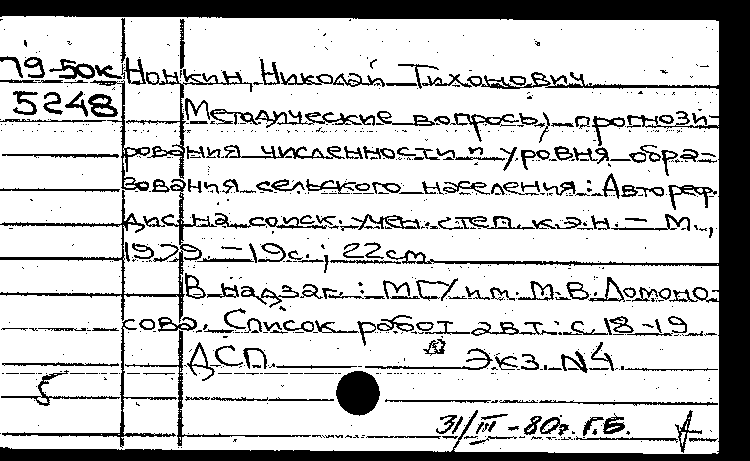 79-50к Нонкин, Николай Тихонович.
5248 Методические вопросы прогнози-
рования численности и уровня обра-
зования сельского населения: Автореф.
дис. на соиск. учен. степ. к.э.н. - М.,
1979. - 19с.; 22см.
В надзаг.: МГУ им. М.В. Ломоно-
сова. Список работ авт.: с. 18-19.
ДСП. Экз. N4.
5
31/III - 80г. Г.Б.